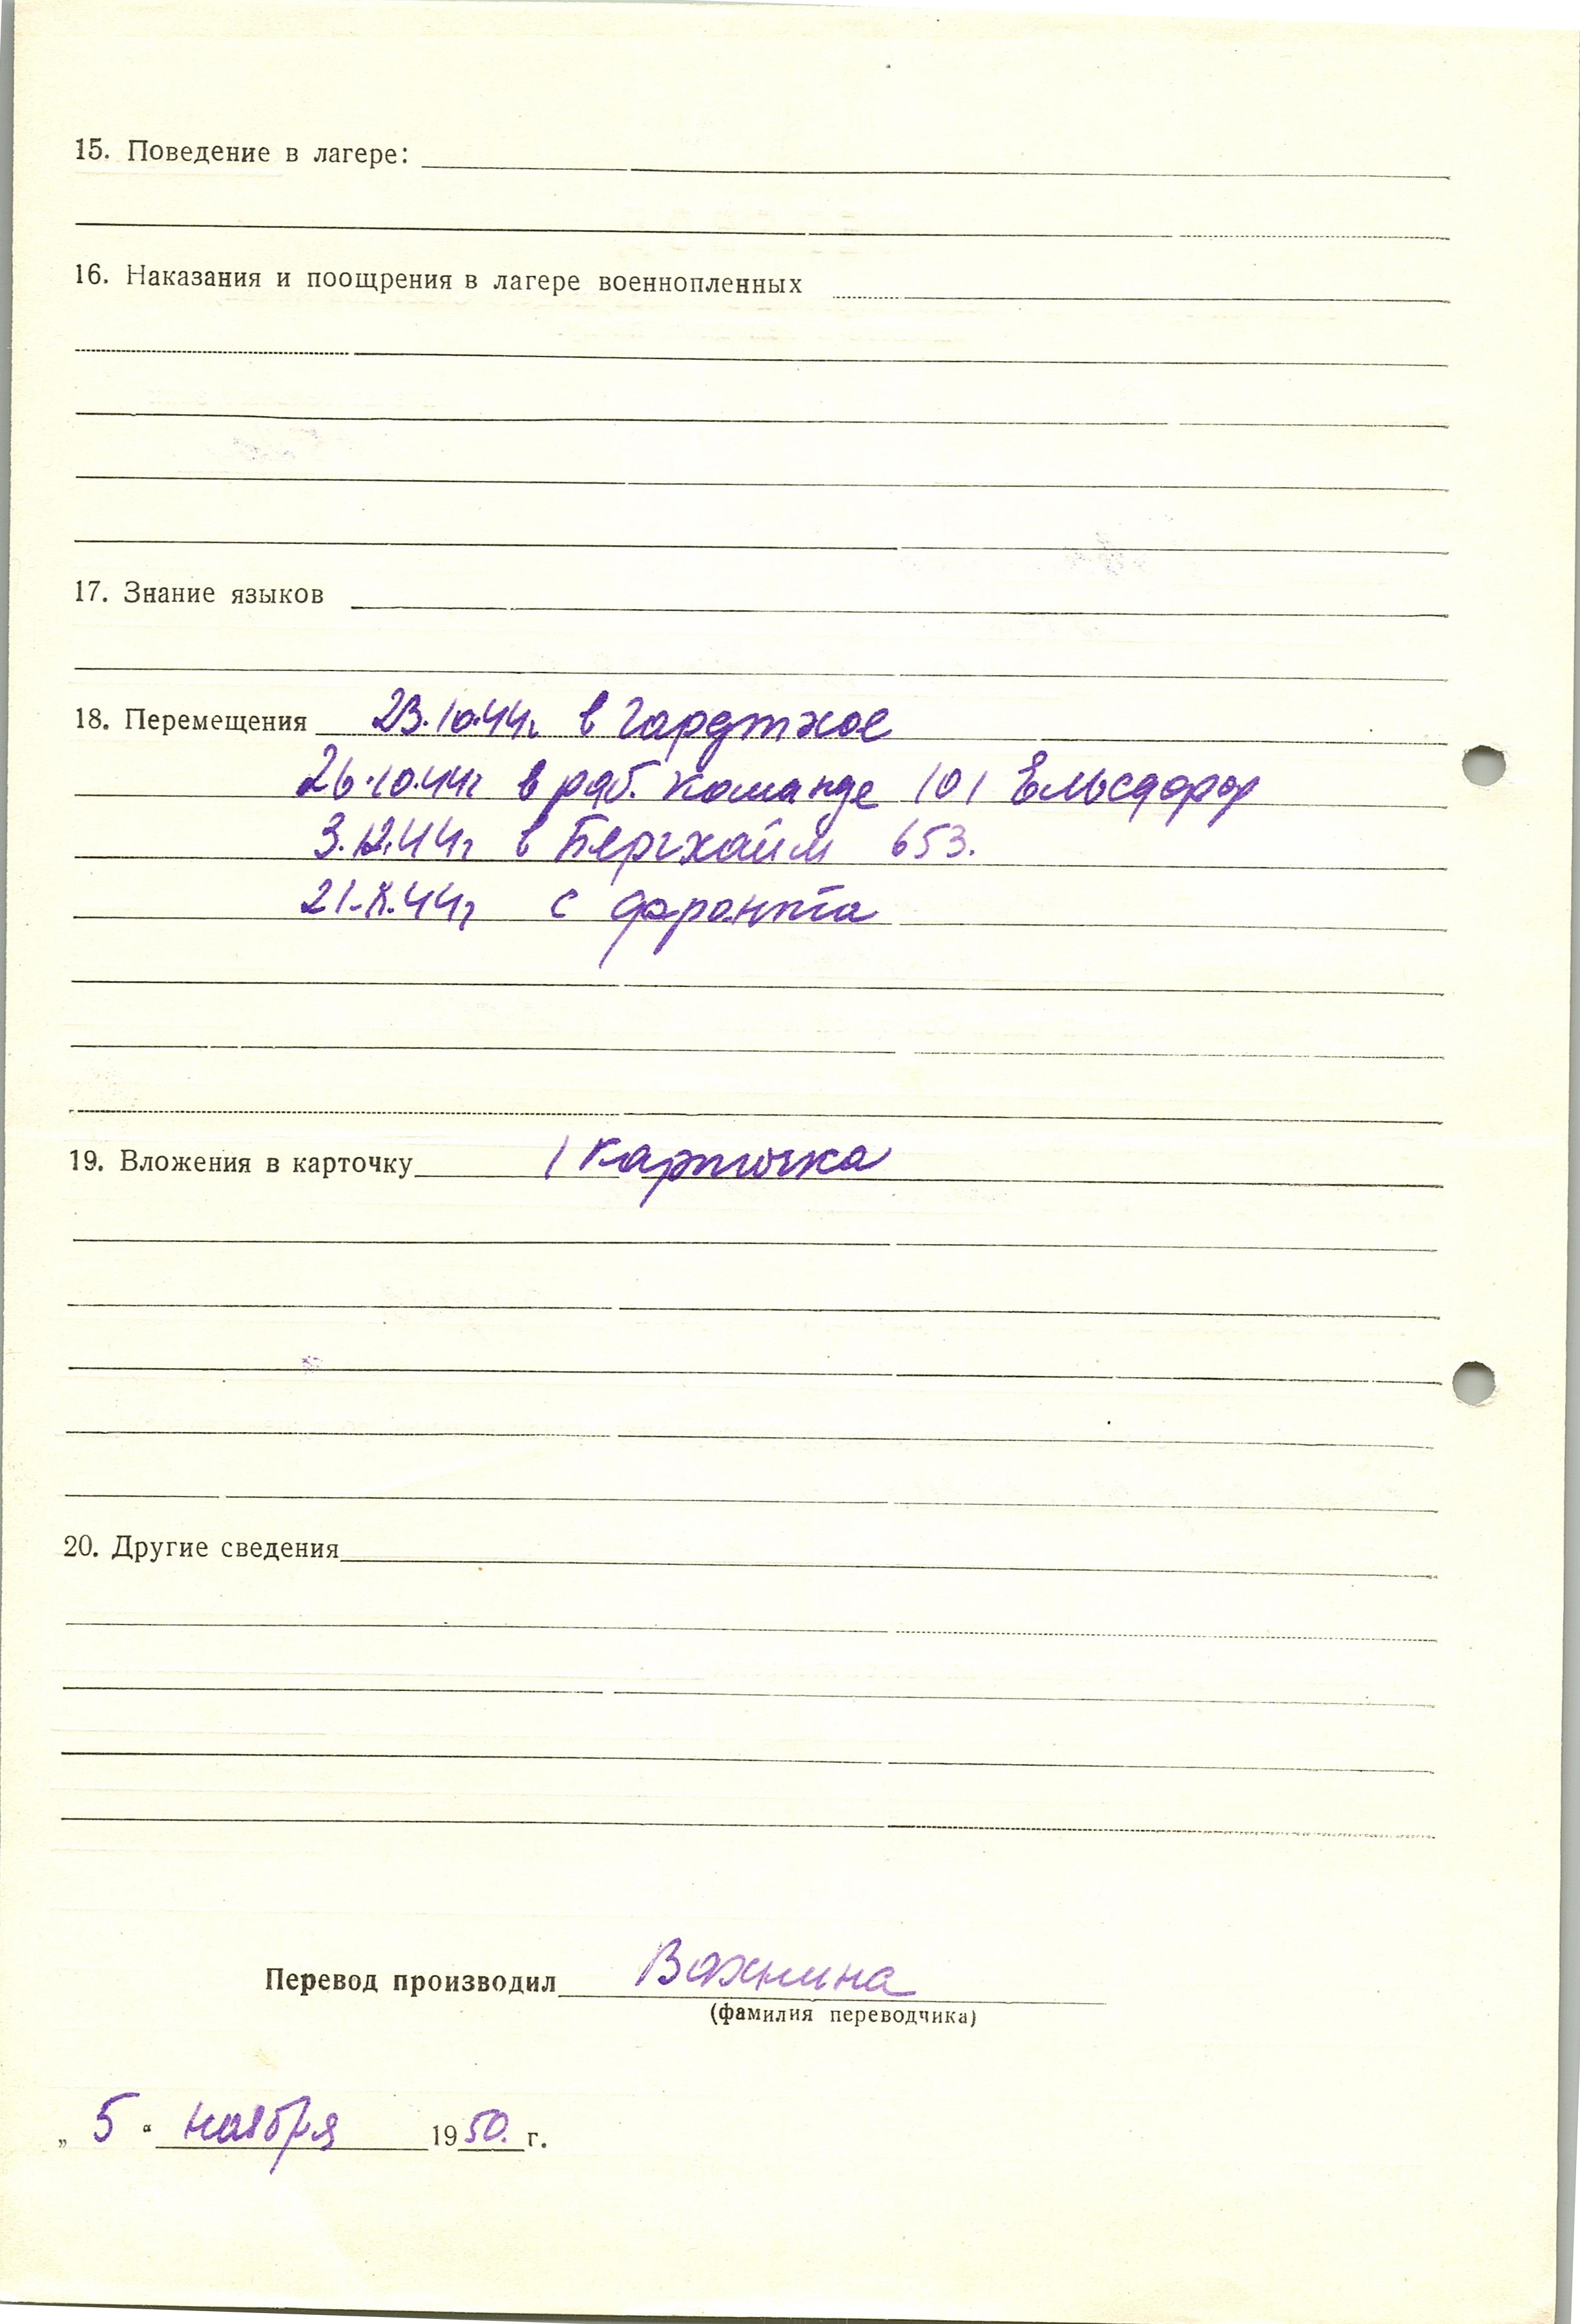 15. Поведение в лагере:
16. Наказания и поощрения в лагере военнопленных
17. Знание языков
18. Перемещения 23.10.44г в
26.10.44г в раб. команде 101 Ельсдорф
3.12.44г в Бергхайм 653.
21.X.44г с фронта
19. Вложения в карточку 1 карточка
20. Другие сведения
Перевод производил Важнина
(фамилия переводчика)
„ 5 “ ноября 1950. г.